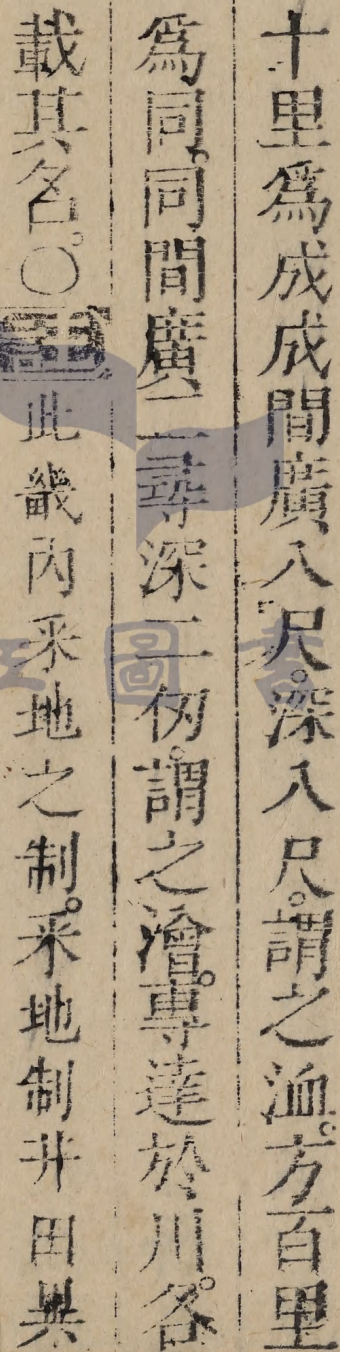 十里爲成成間廣八尺。深八尺。謂之洫。方百里
爲同。同間廣二尋深二仞。謂之澮。專達於川。各
載其名。○註此畿内采地之制。采地制井田異